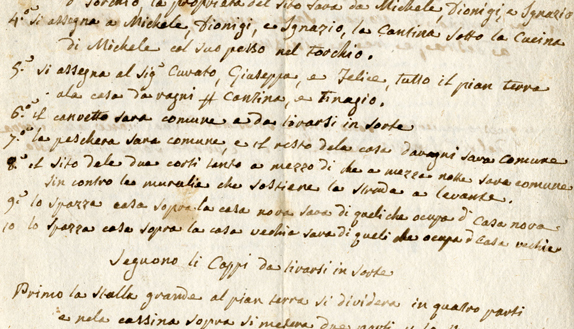 il Torchio, la proprietà del sito sarà da Michele, Dionigi, e Ignazio
4.° si assegna a Michele, Dionigi, e Ignazio, la Cantina sotto la Cucina
di Michele col suo posso nel Torchio.
5.° si assegna al Sig.r Curato, Giuseppa, e Felice, tutto il pian terra
ala casa da ragni # Cantina, e
6.° il canvetto sara comune e da tirarsi in sorte
7.° la peschera sara comune, e il resto dela casa da ragni sara comune
8.° il sito dele due corti tanto a mezzo di che a mezza notte sara comune
sin contro la muralia che sostiene la strada a levante.
9.° lo spazza casa sopra la casa nova sara di queli che ocupa d Casa nova
10 lo spazza casa sopra la casa vechia sara di queli che ocupa d Casa vechia
Seguono li Coppi da tirarsi in sorte
Primo la stalla grande al pian terra si dividera in quatro parti
e nela cassina sopra si metera due parti